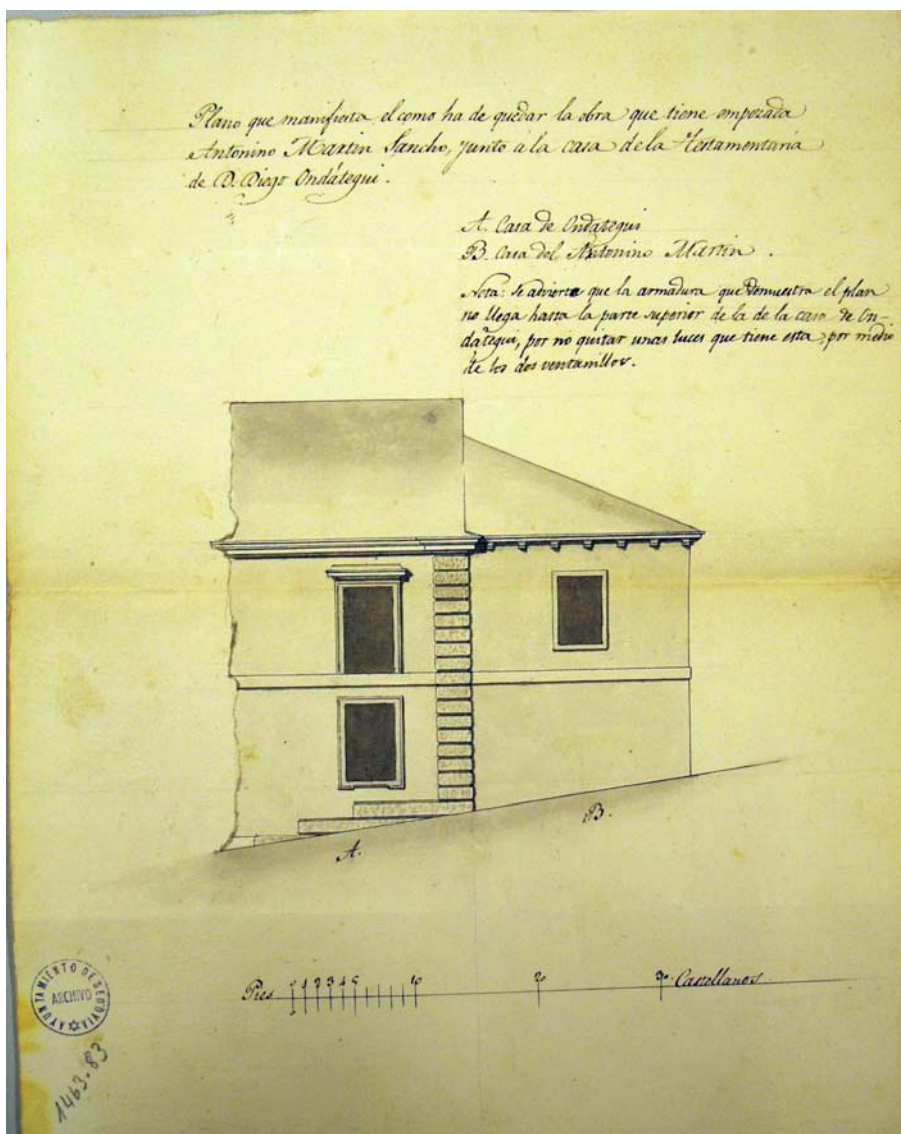 Plano que manifiesta el como ha de quedar la obra que tiene empezada
Antonino Martin Sancho, junto à la casa de la Testamentaria
de D. Diego Ondátegui.
A. Casa de Ondategui
B. Casa del Antonino Martin.
Nota: Se advierte que la armadura que demuestra el plan
no llega hasta la parte superior de la de la casa de On-
dategui, por no quitar unas luces que tiene esta, por medio
de los dos ventanillos.
A.
B.
Pies 0 1 2 3 4 5 10 20 30 Castellanos
AYUNTAMIENTO DE SEGOVIA
ARCHIVO
1463-83